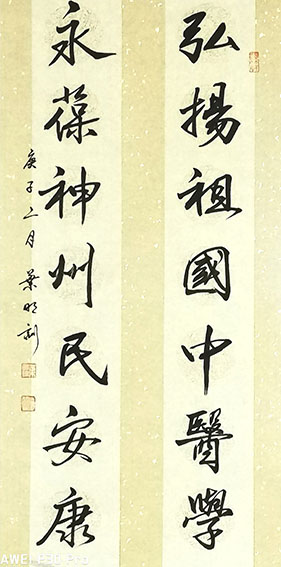 弘揚祖國中醫學
永葆神州民安康
庚子二月 葉明利